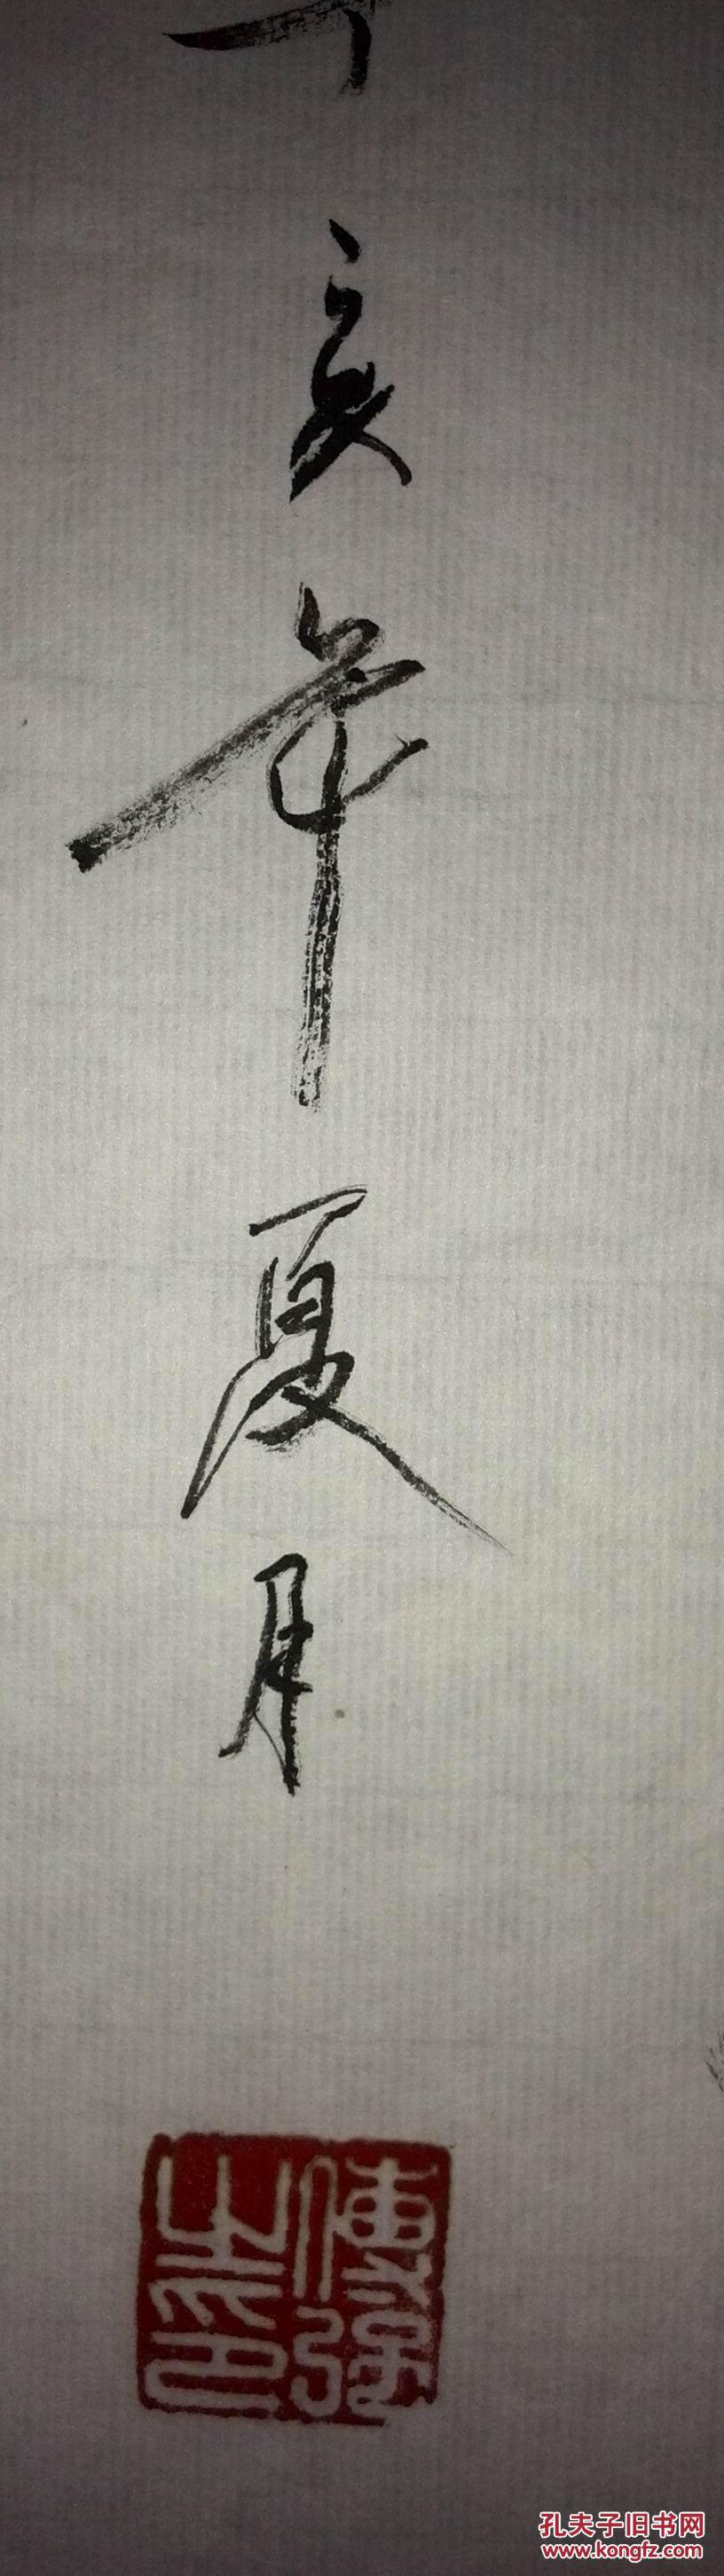 丁亥年夏月
傅强之印
孔夫子旧书网
www.kongfz.com